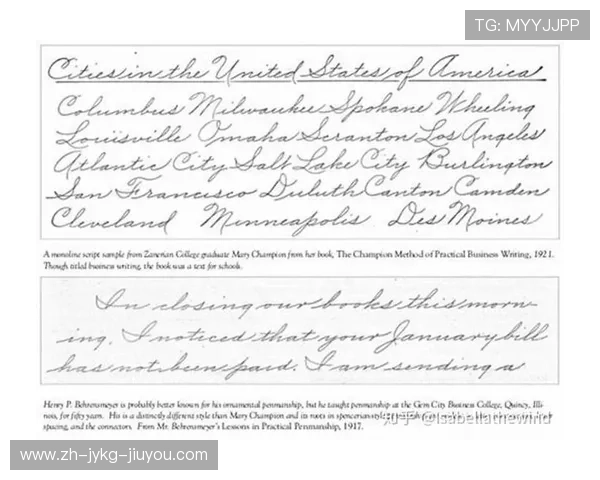 TG: MYYJJPP
Cities in the United States of America
Columbus Milwaukee Spokane Wheeling
Louisville Omaha Scranton Los Angeles
Atlantic City Salt Lake City Burlington
San Francisco Duluth Canton Camden
Cleveland Minneapolis Des Moines
A monoline script sample from Zanerian College graduate Mary Champion from her book, The Champion Method of Practical Business Writing, 1921.
Though titled business writing, the book was a text for schools.
In closing our books this morn-
ing, I noticed that your January bill
has not been paid. I am sending a
Henry P. Behrensmeyer is probably better known for his ornamental penmanship, but he taught penmanship at the Gem City Business College, Quincy, Illi-
nois, for fifty years. His is a distinctly different style than Mary Champion and its roots in spencerian style
知乎 @Isabellathewind
spacing, and the connectors. From Mr. Behrensmeyer's Lessons in Practical Penmanship, 1917.
www.zh-jykg-jiuyou.com